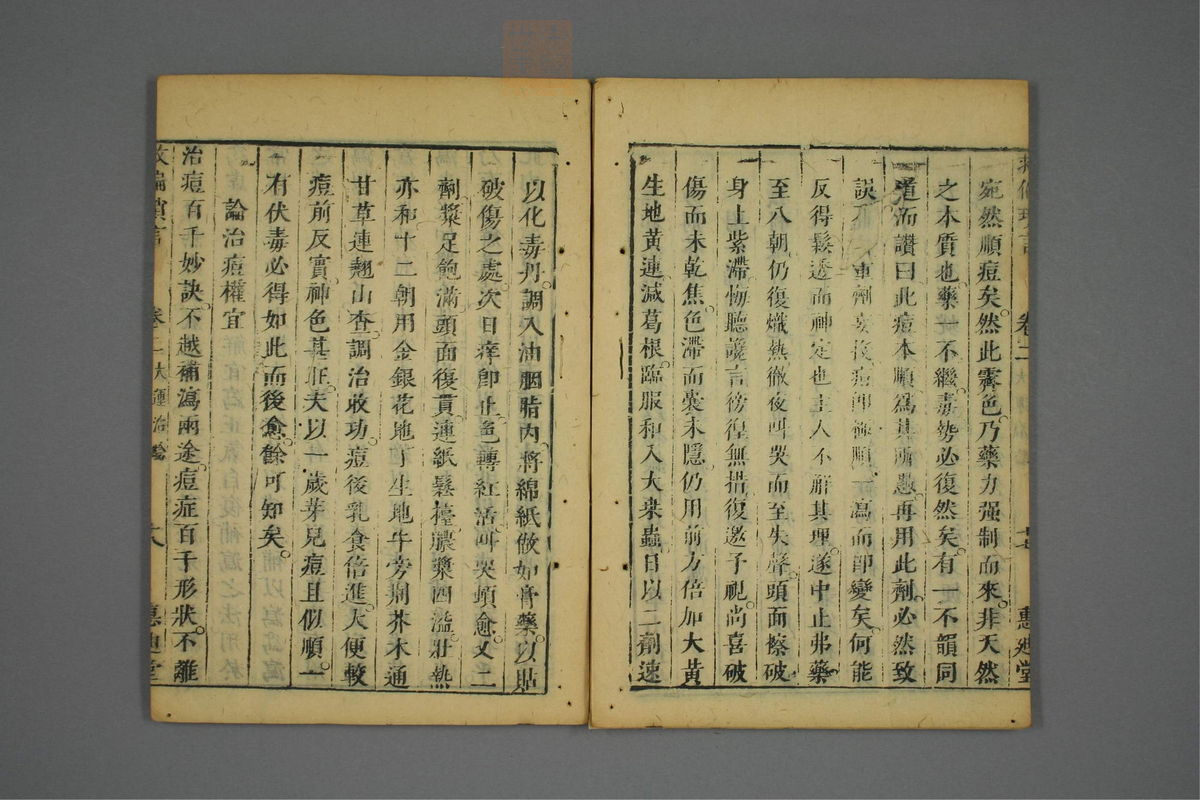 宛然順痘矣然此霽色乃藥力强制而來非天然
之本質也藥不繼毒勢必復然矣有一不韻同
道而讚曰此痘本順爲其所愚再用此劑必然致
反得鬆透而神定也主人不解其理遂中止弗藥
至八朝仍復熾熱徹夜叫哭而至失聲頭面擦破
身上紫滯悔聽讒言徬徨無措復邀予視尚喜破
傷而未乾焦色滯而囊未隱仍用前方倍加大黃
生地黃連減葛根臨服和入大桑蟲日以二劑速
以化毒丹調入油胭脂內將綿紙做如膏藥以貼
破傷之處次日痒卽止色轉紅活叫哭頓愈又二
劑漿足飽滿頭面復貫連紙鬆擡膿漿四溢壯熱
亦和十二朝用金銀花地丁生地牛旁荆芥木通
甘草連翹山查調治收功痘後乳食倍進大便較
痘前反實神色甚旺夫以一歲芽兒痘且似順一
有伏毒必得如此而後愈餘可知矣
論治痘權宜
治痘百千妙訣不越補瀉兩途痘症百千形狀不離
卷二 大運治論